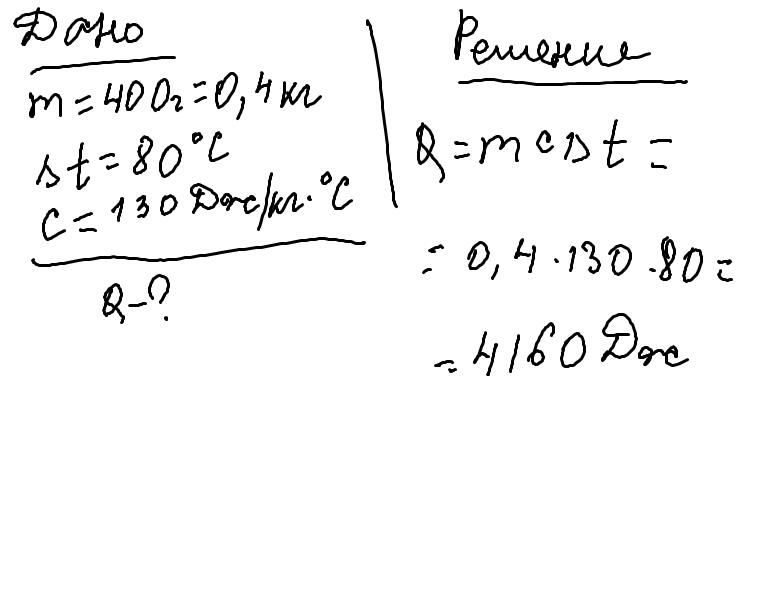 Дано
m=400г=0,4кг
Δt=80°C
c=130Дж/кг·°C
Q-?
Решение
Q=mcΔt=
=0,4·130·80=
=4160Дж